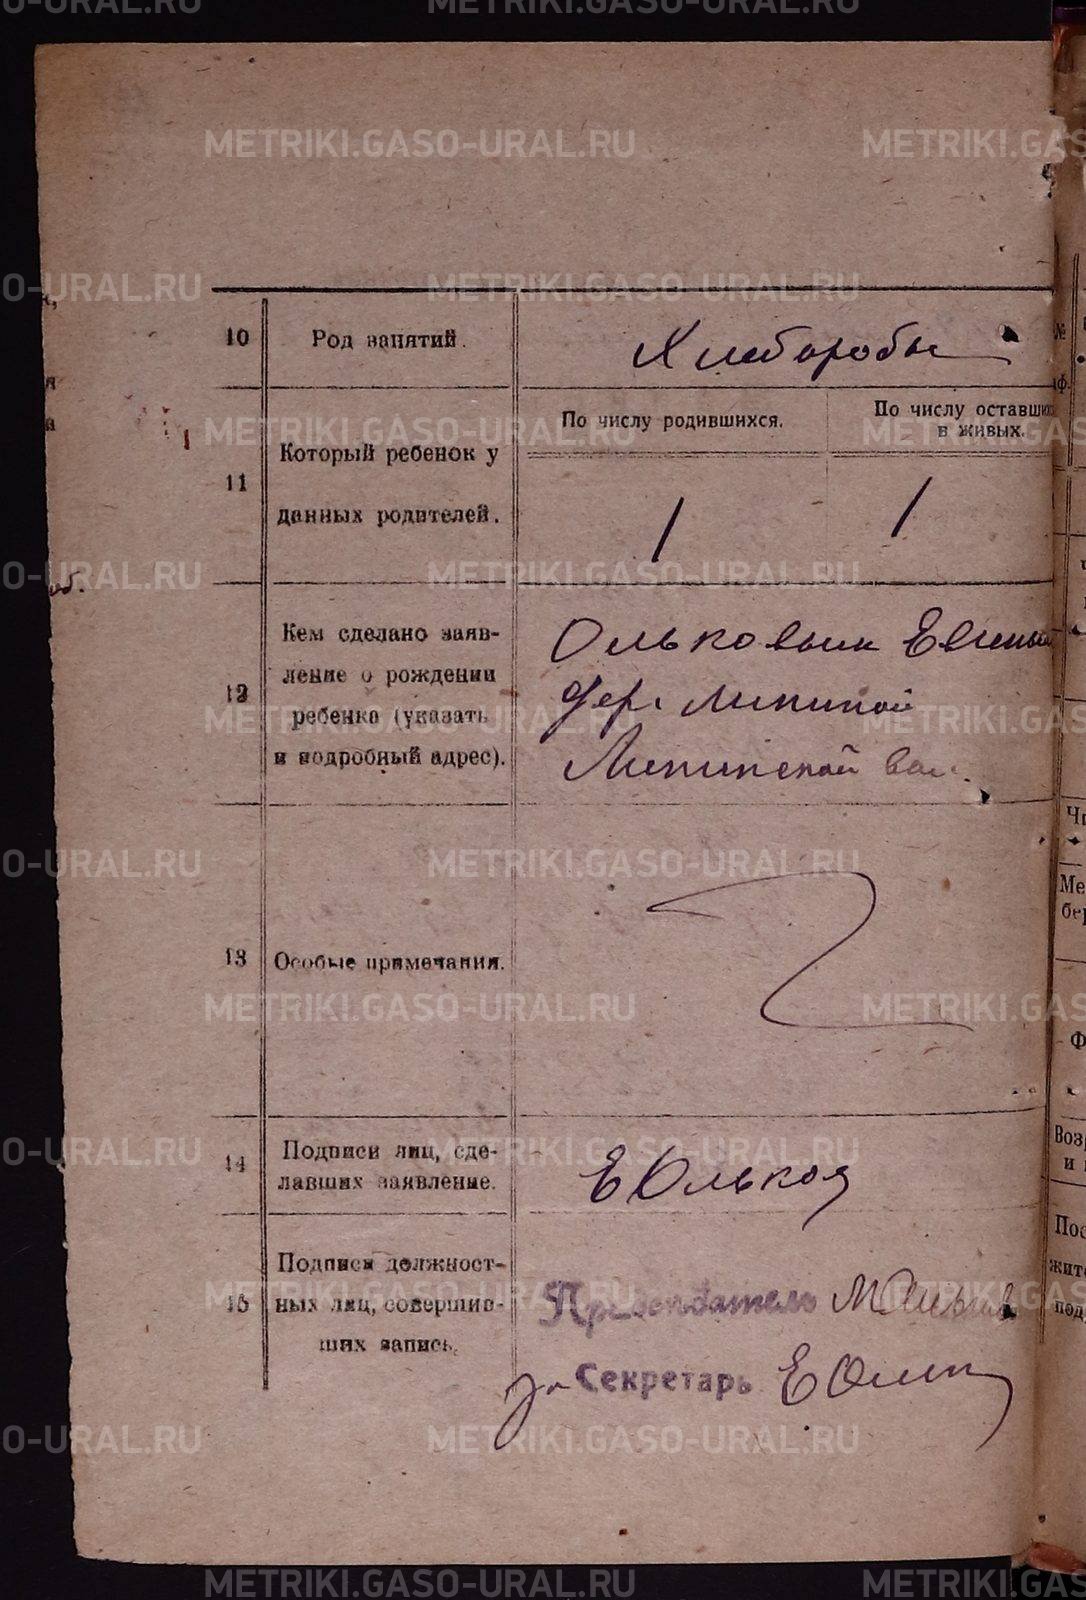 10 Род занятий. Хлеборобы
11 Который ребенок у данных родителей.
По числу родившихся. По числу оставших
в живых.
1 1
12 Кем сделано заяв-
ление о рождении
ребенка (указать
и подробный адрес).
Ольковым Евгений
дер. Липиной
Липинской вол.
13 Особые примечания.
14 Подписи лиц, сде-
лавших заявление.
Е Ольков
15 Подписи должност-
ных лиц, совершив-
ших запись.
Председатель М
за Секретарь Е
METRIKI.GASO-URAL.RU